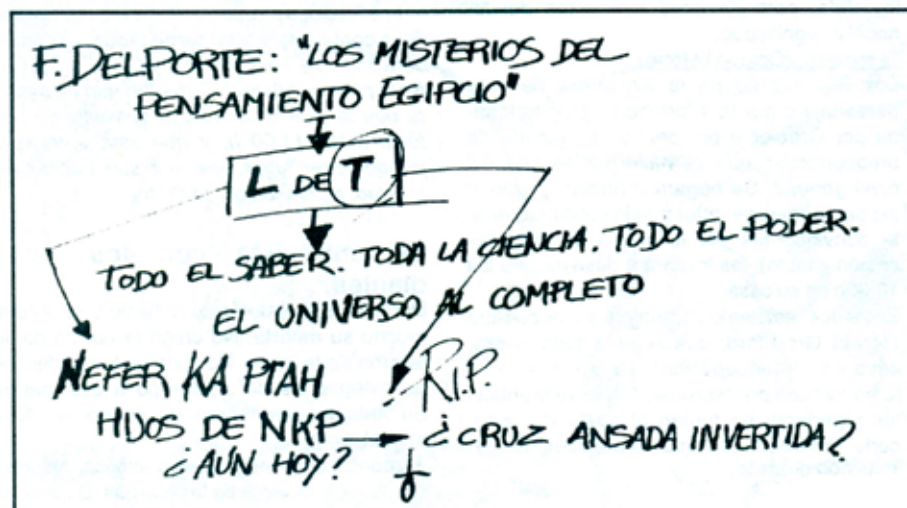 F. DELPORTE: "LOS MISTERIOS DEL
PENSAMIENTO EGIPCIO"
L DE T
TODO EL SABER. TODA LA CIENCIA. TODO EL PODER.
EL UNIVERSO AL COMPLETO
NEFER KA PTAH R.I.P.
HIJOS DE NKP ¿CRUZ ANSADA INVERTIDA?
¿AÚN HOY?